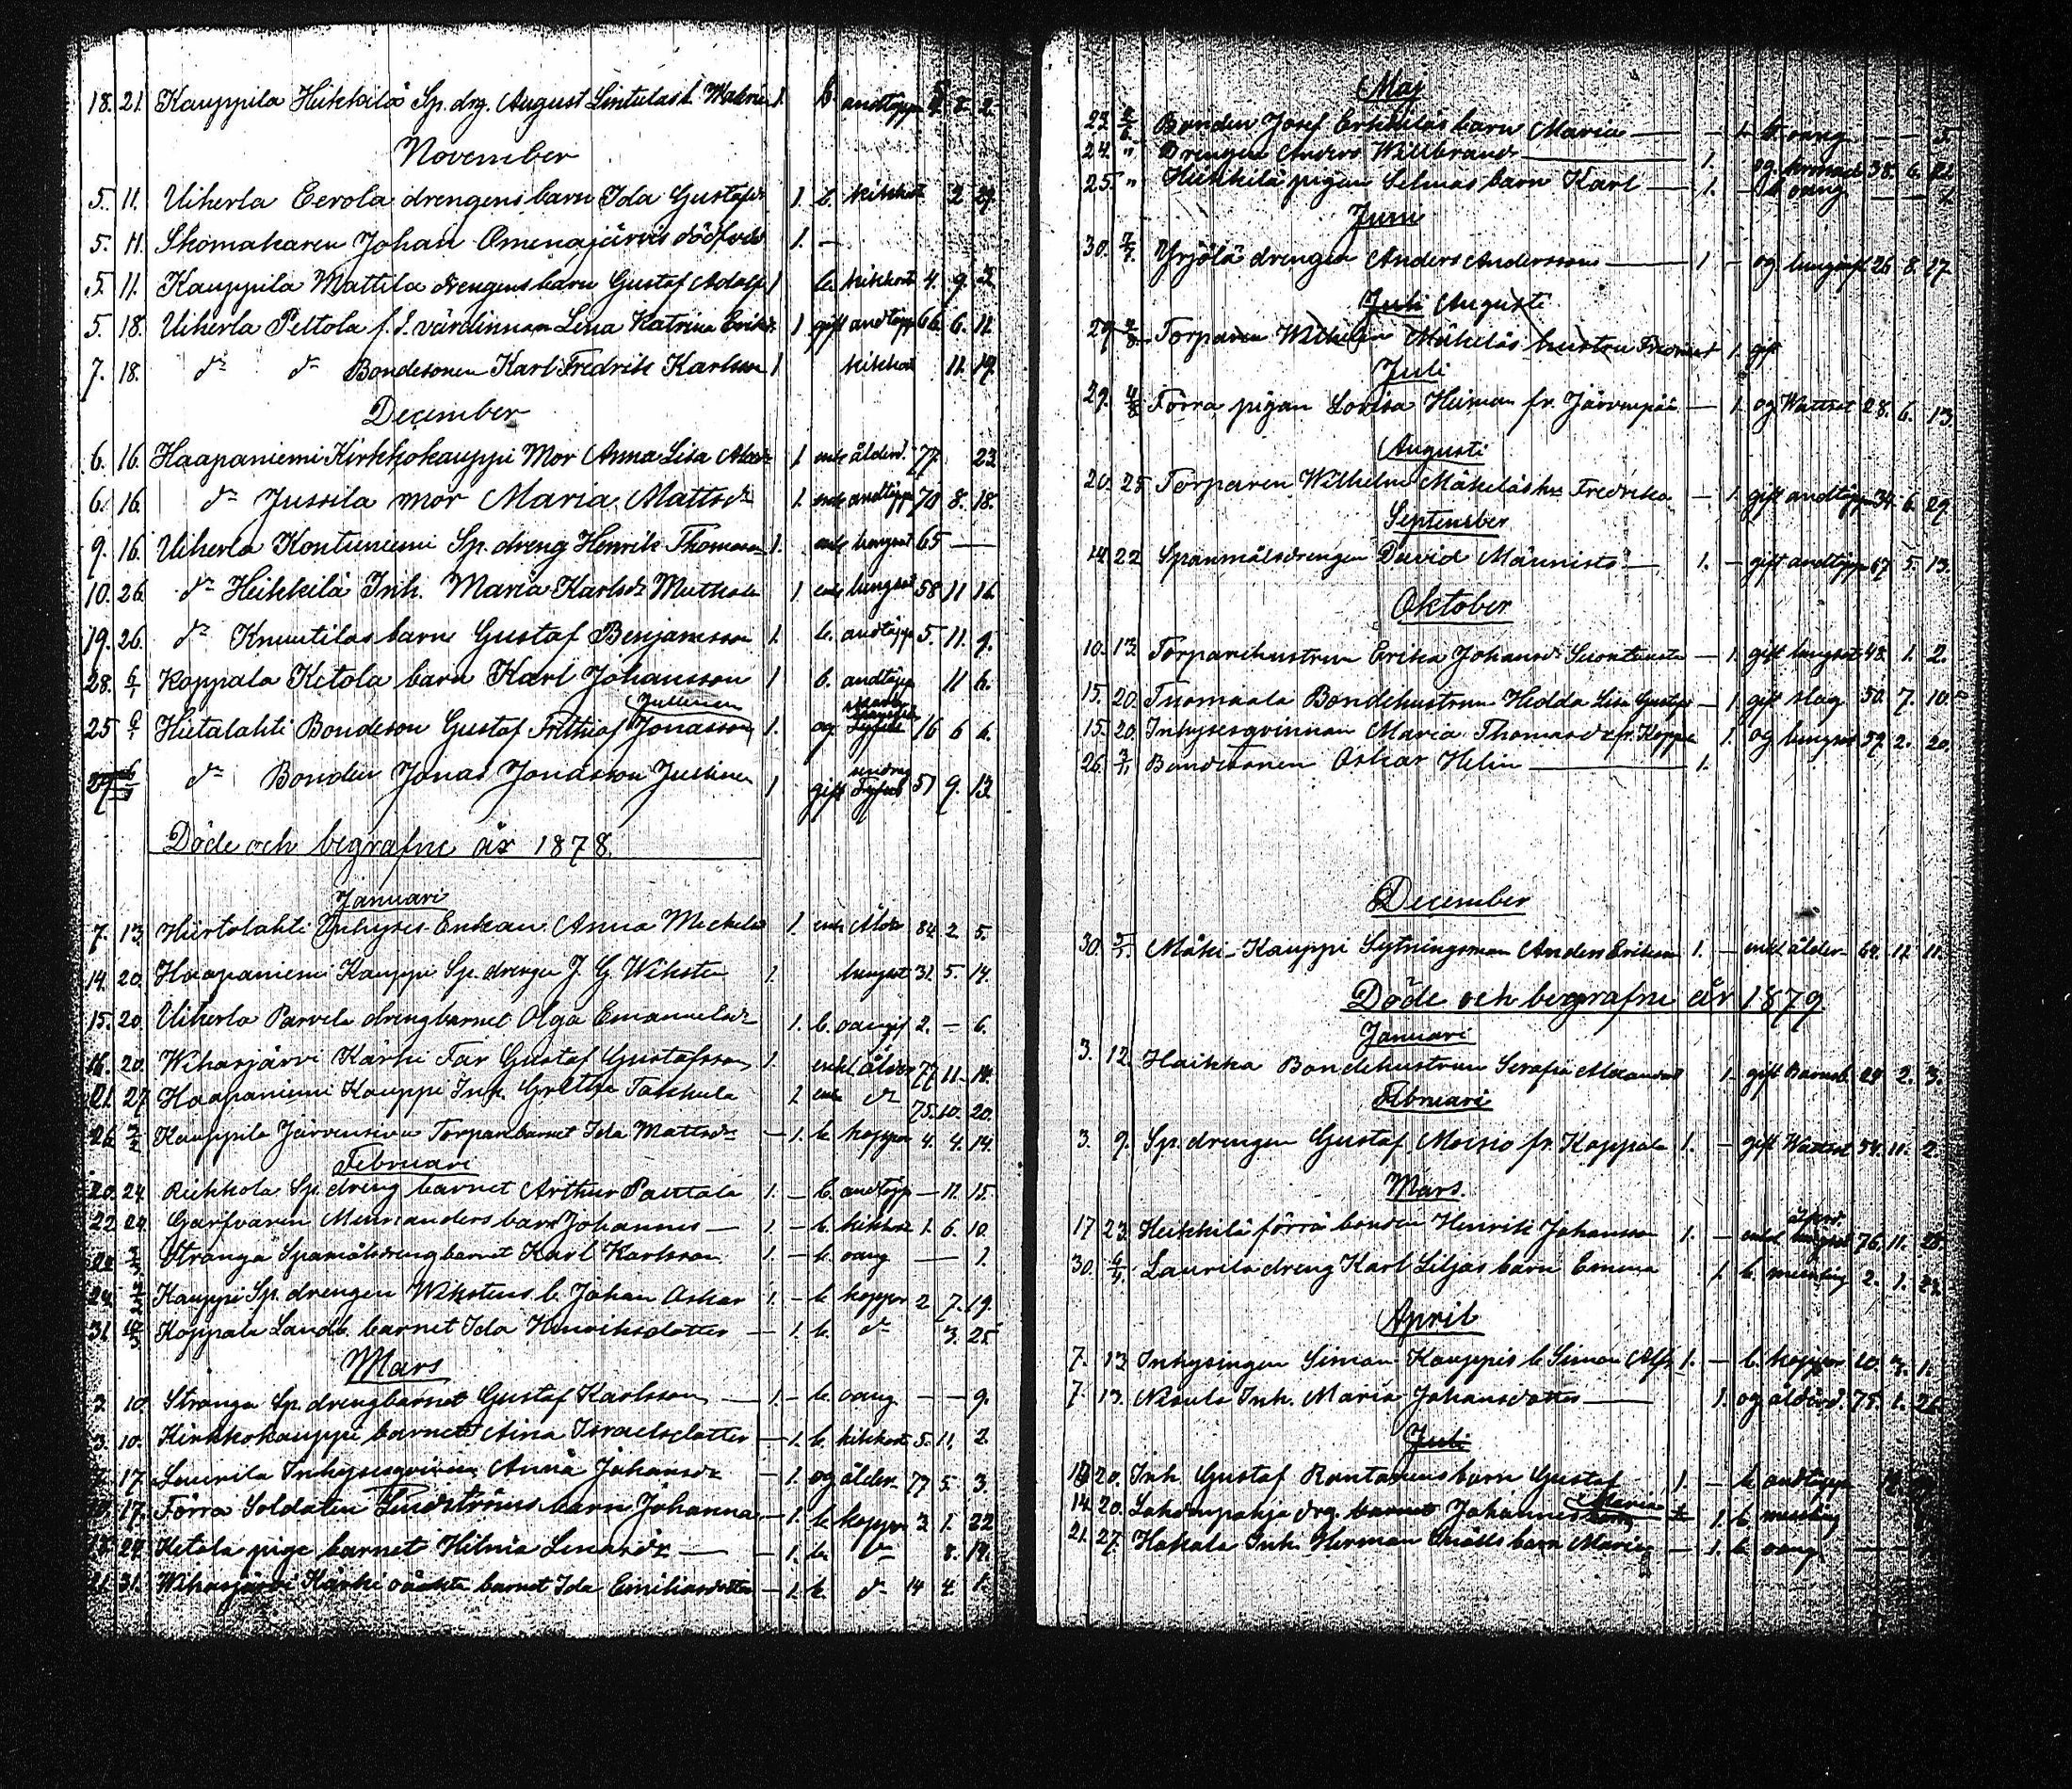 18. 21. Kauppila Heikkilä Sp. drg. August Lintulas b. 1. b. andtäpp 8. 2.
November
5. 11. Uiherla Eerola drengens barn Ida Gustafsd. 1. b. kikhost 2 29.
5. 11. Skomakaren Johan Omenajärvis dödf. 1. —
5. 11. Kauppila Mattila drengens barn Gustaf Adolf 1 b. kikhost 4. 9. 2.
5. 18. Uiherla Peltola f. d. värdinnan Lena Katrina Eriksd. 1 gift andtäpp 66. 6. 11.
7. 18. do do Bondesonen Karl Fredrik Karlsson 1 kikhost 11. 19.
December
6. 16. Haapaniemi Kirkkokauppi Mor Anna Lisa 1 enk ålderd. 77. 23
6. 16. do Jussila mor Maria Mattsdr 1. enk andtäpp 70 8. 18.
9. 16. Uiherla Kontuniemi Sp. dreng Henrik Thomasson 1. enk lungsot 65 —
10. 26. do Heikkilä Inh. Maria Karlsdr 1. enk lungsot 58 11 16.
19. 26. do Knuutilas barn Gustaf Benjamsson 1. b. andtäpp 5. 11. 9.
28. 6/1 Koppala Ketola barn Karl Johansson 1 b. andtäpp 11 6.
25 6/1 Hietalahti Bondeson Gustaf Frithiof Jonasson Jusenen 1. og 16 6 6.
27 6/1 do Bonden Jonas Jonasson 1 gift 51 9. 13.
Döde och begrafne år 1878.
Januari
7. 13. Hiirtolahti Inhyses Enkan Anna 1. enk Ålder 84. 2 5.
14. 20. Haapaniemi Kauppi Sp. drengen J. G. Wiksten 1. lungsot 31. 5. 14.
15. 20. Uiherla Parvela drengbarnet Olga Emanuelsdr 1. b. 2. — 6.
16. 20. Wiharjärvi Kärki Far Gustaf Gustafsson 1. enkl ålder 77 11. 14.
21. 27 Haapaniemi Kauppi Inh. Gretha Takkula 1 enk do 75. 10. 20.
26 3/2 Kauppila Järvensivu Torparebarnet Ida Mattsdr — 1. b. koppor 4. 4. 14.
Februari
20. 24. Riekkola Sp. dreng barnet Arthur 1. — b. andtäpp — 11. 15.
22 24. Garfvaren barn Johannes — 1. — b. kikhost 1. 6. 10.
3/3 Stranga Spamålsdrengbarnet Karl Karlsson 1. — b. oang — 1.
24. Kauppi Sp. drengen Wikstens b. Johan Oskar 1. — b. koppor 2 7. 19.
31. 10/3 Koppala Landb. barnet Ida Henriksdotter — 1. b. do 3. 25.
Mars
3. 10. Stranga Sp. drengbarnet Gustaf Karlsson — 1. — b. oang — — 9.
3. 10. Kirkkokauppi barnet Aina Israelsdotter — 1. b. kikhost 5. 11. 2.
17. Laurila Inhysesqvinnan Anna Johansdr — 1. og ålder 77 5. 3.
17. Förra Soldaten Lindströms barn Johanna — 1. b. koppor 3 1. 22
24. Ketola pige barnet Hilma — 1. b. do 8. 19.
31. Wiharjärvi Kärki barnet Ida — 1. b. do 14 4. 1.
Maj
23. 2/6 Bonden Josef Erkkiläs barn Maria — — 1. b. oang — — 5.
24. " Drengen Anders Willbrand — 1. og 38. 6. 22
25. " Heikkilä pigan Selmas barn Karl — 1. — b. oang — —
Juni
30. 7/7. Yrjölä drengen Anders Andersson — 1 — og lungsot 26. 8. 17.
Juli Augusti
29 4/8 Torparen Wilhelm Mäkeläs hustru 1. gift
Juli
29. 4/8 Förra pigan Lovisa Heiman fr. Järvenpää — 1. og Wattsot 28. 6. 13.
Augusti
20. 25 Torparen Wilhelm Mäkeläs hu. Fredrika — 1. gift andtäpp 34. 6. 29
September
14. 22 Spanmålsdrengen David Männistö — 1. — gift andtäpp 67 5. 13.
Oktober
10. 13. Torparehustrun Erika Johansdr — 1. gift lungsot 48. 1. 2.
15. 20. Tuomaala Bondehustrun Hedda Lisa — 1. gift slag 50. 7. 10.
15. 20. Inhysesqvinnan Maria Thomasdr fr. 1. og lungsot 59. 2. 20.
26. 3/11. Bondesonen Oskar Helin — 1.
December
30. 5/1. Mäki-Kauppi Sytningsman Anders Eriksson 1. — enkl ålder 64. 11. 11.
Döde och begrafne år 1879.
Januari
3. 12. Haikka Bondehustrun Serafia — 1. gift Barnsb. 29 2. 3.
Februari
3. 9. Sp. drengen Gustaf Moisio fr. Koppala 1. — gift Wattsot 54. 11. 2.
Mars.
17 23. Heikkilä förra bonden Henrik Johansson 1. — enkl ålderd. 76. 11. 28.
30. 6/4. Laurila dreng Karl Liljas barn Emma 1. b. messling 2. 1. 22
April
7. 13. Inhysingen Simon Kauppis b. Simon 1. — b. koppor 10. 3. 1.
7. 13. Nisula Inh. Maria Johansdotter — 1. og ålderd. 75. 1. 26.
Juli
14 20. Inh. Gustaf Rantanens barn Gustaf 1. — b. andtäpp
14. 20. drg. barnet Johannes Maria 1. b. messling
21. 27. Hakala Inh. Herman barn Maria — 1. b. oang